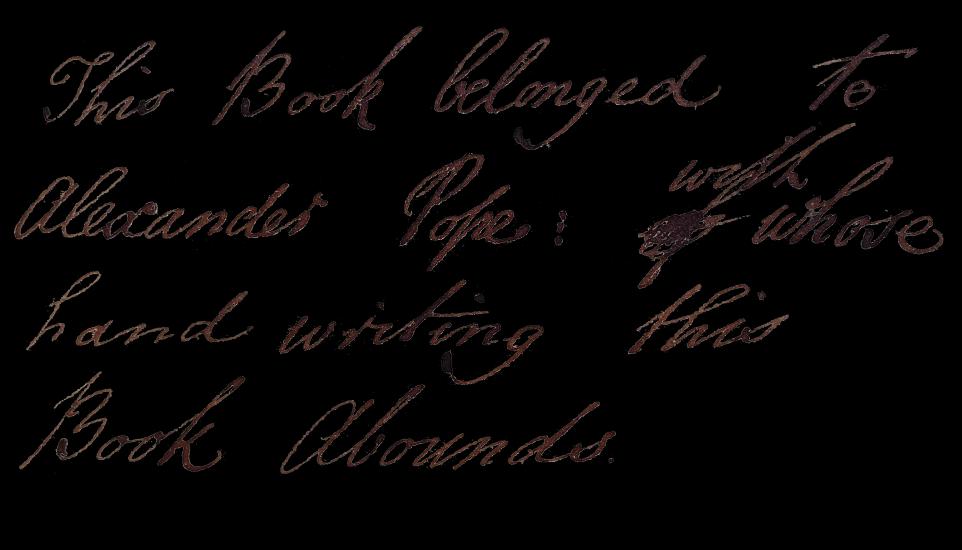 This Book belonged to
Alexander Pope: with whose
hand writing this
Book Abounds.